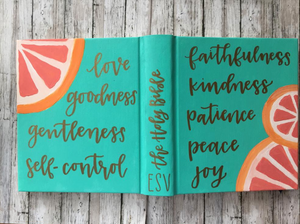 love
goodness
gentleness
self-control
the Holy Bible
ESV
faithfulness
kindness
patience
peace
joy